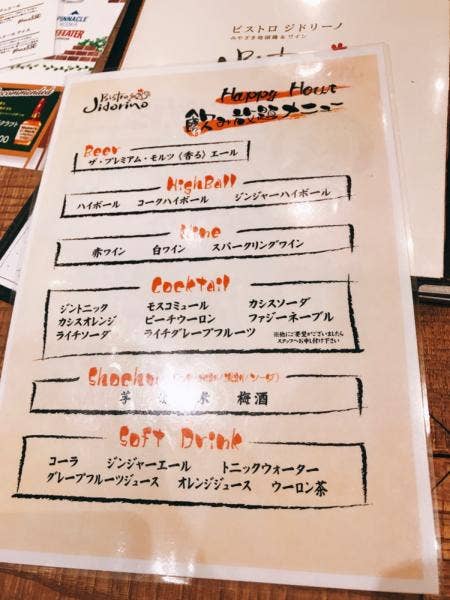 PINNACLE
BEEFEATER
ビストロ ジドリーノ
みやざき地頭鶏&ワイン
Bistro
Jidorino
Happy Hour
飲み放題メニュー
Beer
ザ・プレミアム・モルツ〈香る〉エール
HighBall
ハイボール コークハイボール ジンジャーハイボール
Wine
赤ワイン 白ワイン スパークリングワイン
Cocktail
ジントニック モスコミュール カシスソーダ
カシスオレンジ ピーチウーロン ファジーネーブル
ライチソーダ ライチグレープフルーツ ※他にご要望がございましたら
スタッフへお申し付け下さい
Shochu
芋 米 梅酒
Soft Drink
コーラ ジンジャーエール トニックウォーター
グレープフルーツジュース オレンジジュース ウーロン茶